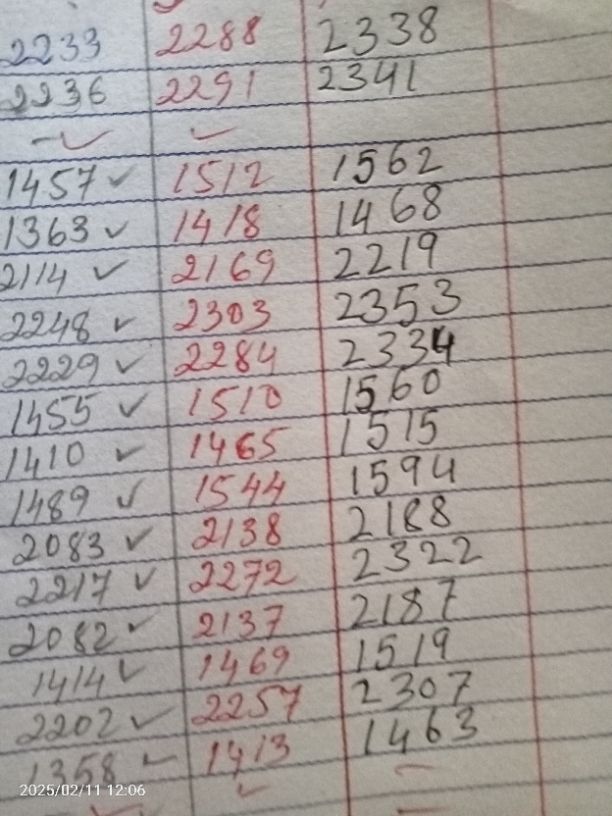 2233 2288 2338
2236 2291 2341
- ✓ ✓
1457 ✓ 1512 1562
1363 ✓ 1418 1468
2114 ✓ 2169 2219
2248 ✓ 2303 2353
2229 ✓ 2284 2334
1455 ✓ 1510 1560
1410 ✓ 1465 1515
1489 ✓ 1544 1594
2083 ✓ 2138 2188
2217 ✓ 2272 2322
2082 ✓ 2137 2187
1414 ✓ 1469 1519
2202 ✓ 2257 2307
1358 ✓ 1413 1463
2025/02/11 12:06